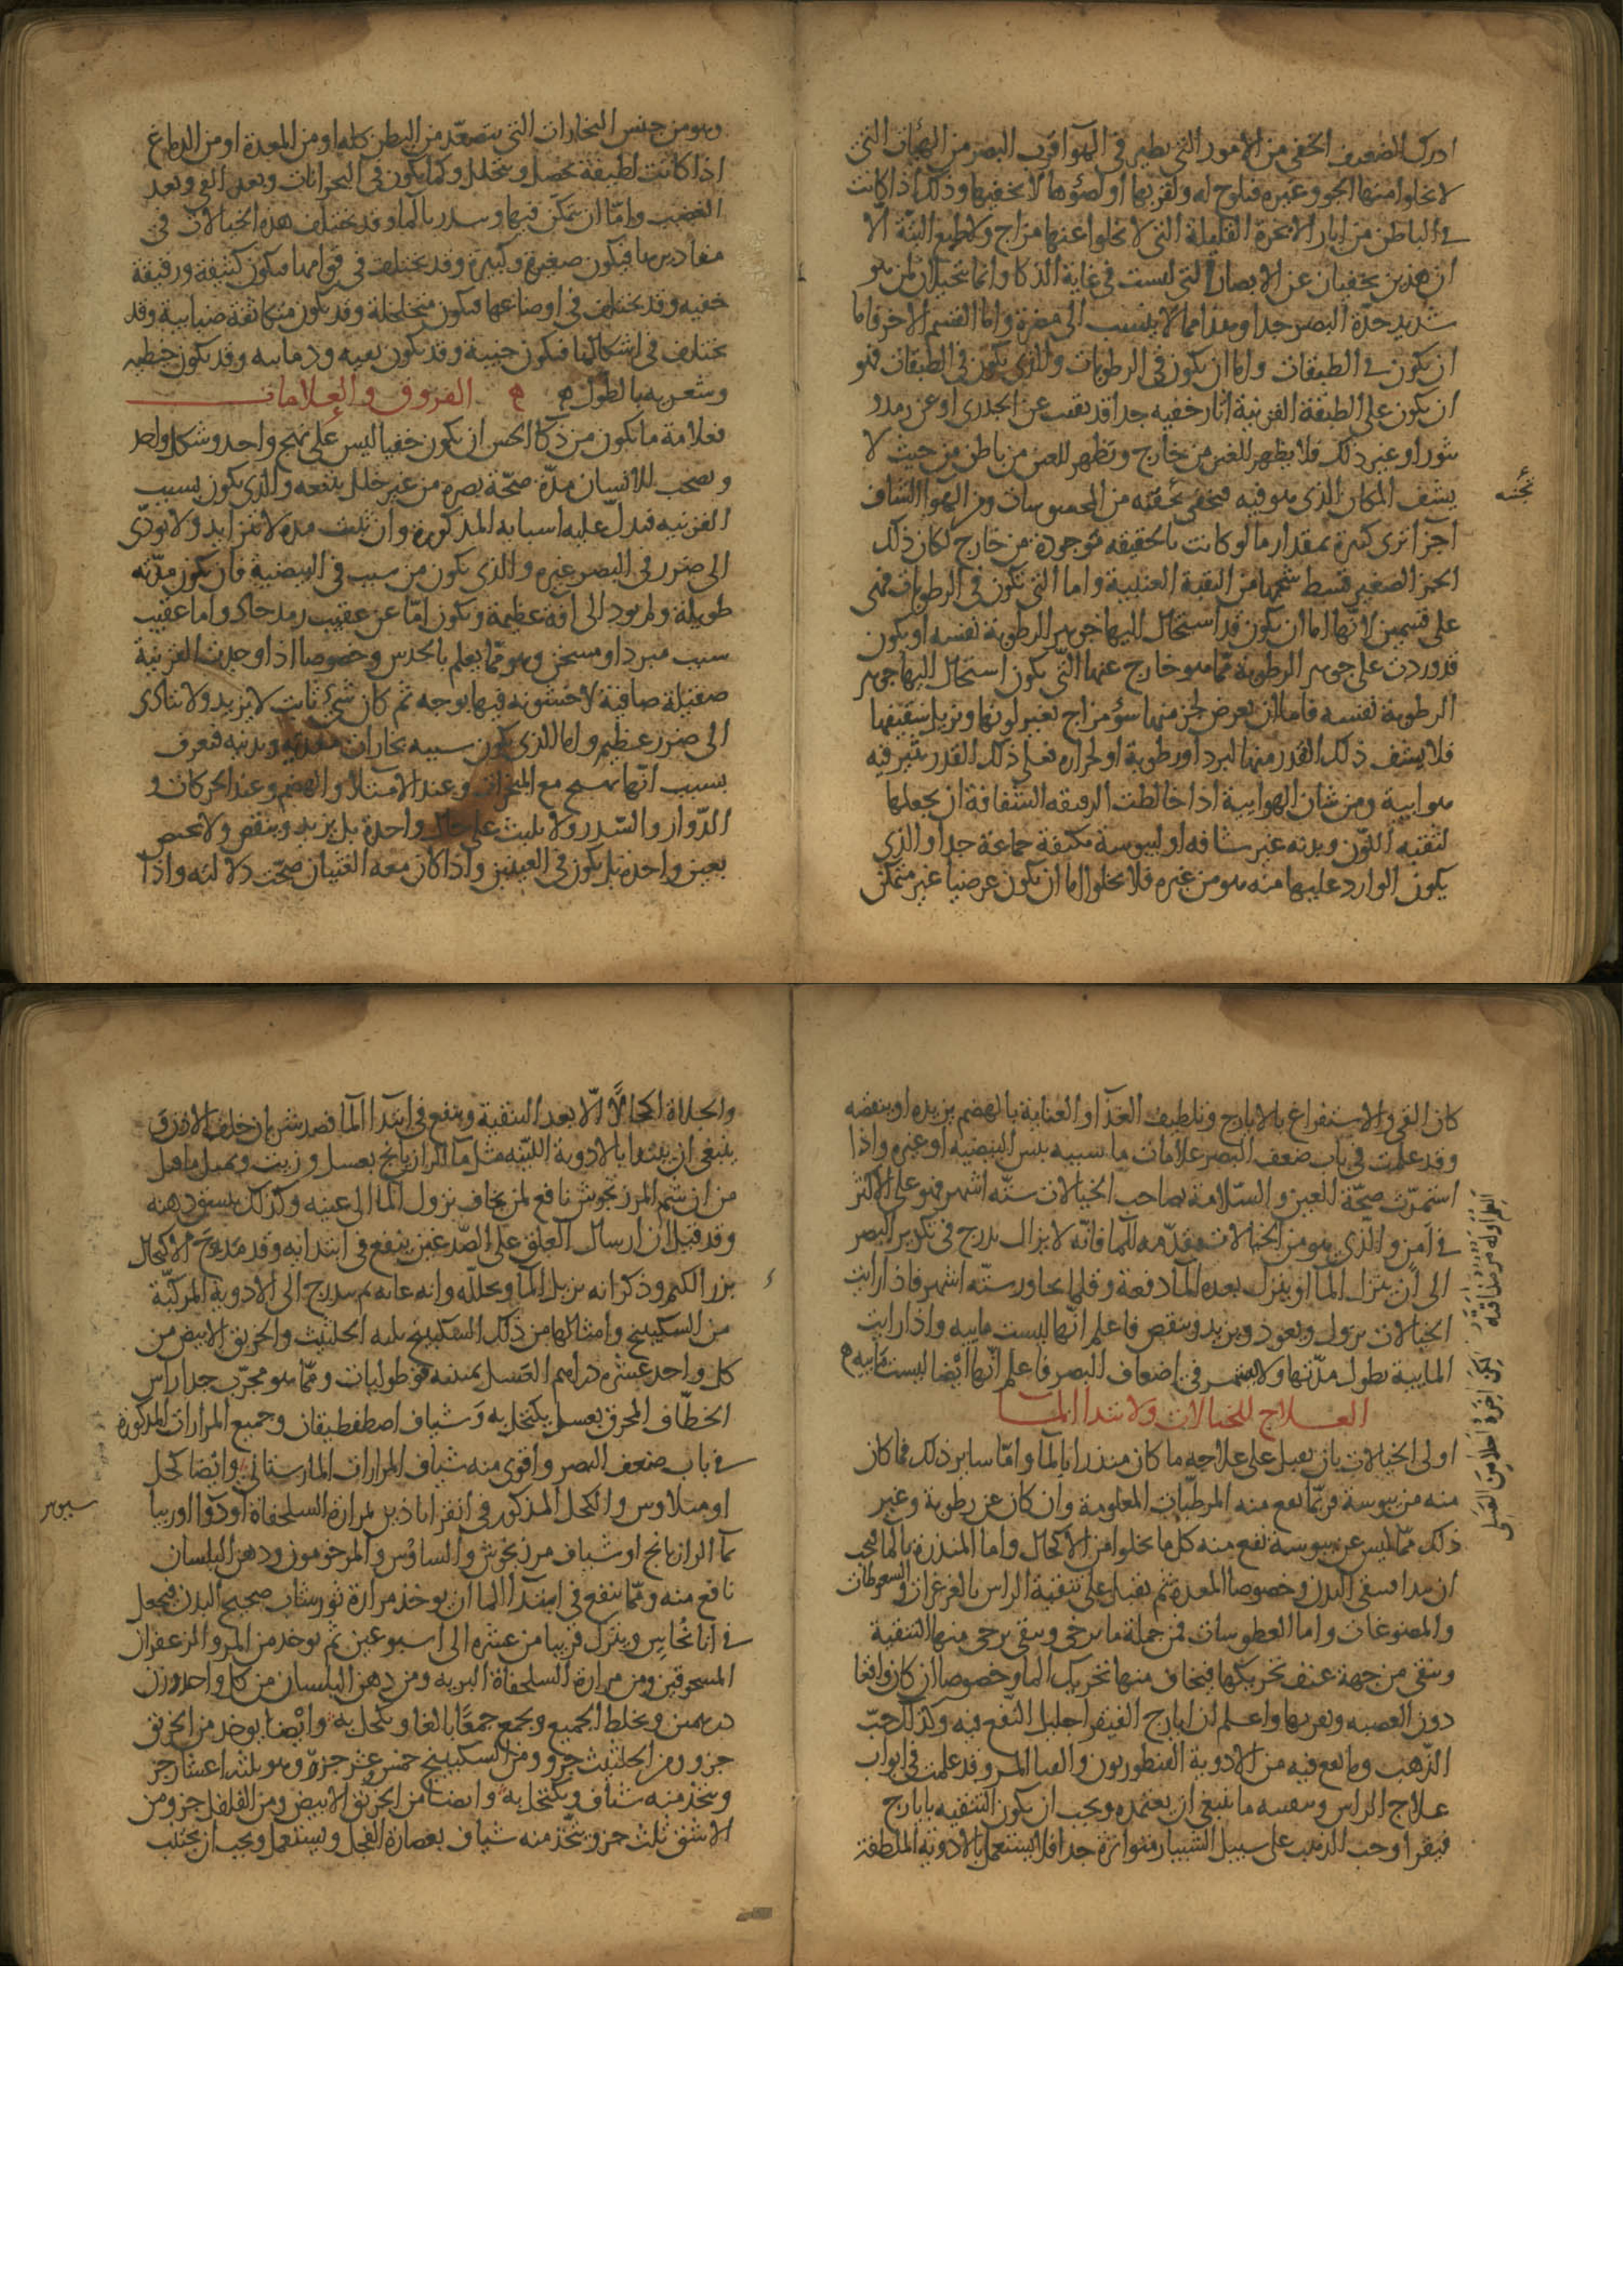 ادرك الضعيف الخفى من الأمور التي يطير في الهوا قرب البصر من الهبات التي
لا يخلوا منها الجو وغيره فيلوح له ولقربها او لضؤها لا يحققها وذلك اذا كانت
في الباطن من اثار الابخرة القليلة التي لا يخلوا عنها مزاج ولا طبع البتة الا
ان هذين يخفيان عن الابصار التي ليست في غاية الذكا وانما يتخيلان لمن هو
شديد حدة البصر جدا وهذا مما لا ينسب الى مضرة واما القسم الاخر فاما
ان يكون في الطبقات واما ان يكون في الرطوبات والذي يكون في الطبقات فهو
ان يكون على الطبقة القرنية اثار خفيه جدا قد بقيت عن الجدري او عن رمد و
بثور او غير ذلك فلا يظهر للعين من خارج ويظهر للعين من باطن من حيث لا
يشف المكان الذي هو فيه فيخفى تحته من المحسوسات ومن الهوا الشاف
اجزا ترى كثيرة بمقدار ما لو كانت بالحقيقه موجودة من خارج لكان ذلك
الجز الصغير قسط شبحها من الثقبة العنبية واما التي تكون في الرطوبات فهي
على قسمين لانها اما ان يكون قد استحال اليها جوهر الرطوبة نفسه او يكون
قد وردت على جوهر الرطوبة مما هو خارج عنها التي يكون استحال اليها جوهر
الرطوبة نفسه فاما ان يعرض لجز منها سؤ مزاج يغير لونها ويزيل شفيفها
فلا يشف ذلك القدر منها لبرد او رطوبة او لحراره تغلى ذلك القدر يثير فيه
هوائية ومن شان الهوايية اذا خالطت الرقيقه الشفافة ان يجعلها
لثقيه اللون وبرته غير شافه او ليبوسة مكثفة جماعة جدا والذي
يكون الوارد عليها منه هو من غيره فلا يخلوا اما ان يكون عرضيا غير متمكن
تجنه
وهو من جنس البخارات التي يتصعد من البطن كله او من المعدة او من الدماغ
اذا كانت لطيفة تحصل وتتحلل وكما يكون في البحرانات وبعد القي وبعد
الغضب واما ان يتمكن فيها وينذر بالما وقد تختلف هذه الخيالات في
مقاديرها فيكون صغيرة وكبيرة وقد يختلف في قوامها فيكون كثيفة ورقيقة
خفيه وقد يختلف في اوضاعها فيكون متخلخلة وقد يكون متكاثفة ضبابية وقد
يختلف في اشكالها فيكون حبيبة وقد يكون بقيه وذبابيه وقد يكون خيطيه
وشعريه بالطول ه ه الفروق والعلامات
فعلامة ما يكون من ذكا الحس ان يكون خفيا ليس على نهج واحد وشكل واحد
ويصحب للانسان مدة صحة بصره من غير خلل يتبعه والذي يكون بسبب
القرنيه فيدل عليه اسبابه المذكورة وان يثبت مده لا يتزايد ولا يودى
الى ضرر في البصر غيره والذي يكون من سبب في البيضية فان يكون مدته
طويلة ولم يود الى افة عظيمة ويكون اما عن عقيب رمد حاد واما عقيب
سبب مبرد او مسخن وهو مما يعلم بالحدس وخصوصا اذا وجدت القرنية
صقيلة صافية لا خشونه فيها بوجه ثم كان شئ ثابت لا يزيد ولا يتادى
الى ضرر عظيم واما الذي يكون سببه بخارات معدية وبدنيه فتعرف
بسبب انها تهيج مع المبخرات وعند الامتلا والهضم وعند الحركات و
الدوار والسدر ولا يلبث على حال واحدة بل يزيد وينقص ولا يختص
بعين واحدة بل يكون في العينين واذا كان معه الغثيان صحت دلالته واذا
كان القي والاستفراغ بالايارج وتلطيف الغذا والعناية بالهضم يزيده او ينقصه
وقد علمت في باب ضعف البصر علامات ما سببه يبس البيضية او غيره واذا
استمرت صحة العين والسلامة بصاحب الخيالات سته اشهر فهو على الاكثر
في امن والذي هو من الخيالات مقدمه للما فانه لا يزال يتدرج في تكدير البصر
الى ان ينزل الما او ينزل بعده الما دفعة وقلما يجاوز سته اشهر فاذا رايت
الخيالات يزول ويعود ويزيد وينقص فاعلم انها ليست مايية واذا رايت
المايية يطول مدتها ولا يستمر في اضعاف البصر فاعلم انها ايضا ليست مايية ه
العلاج للخيالات ولابتدا الما
اولى الخيالات بان يقبل على علاجه ما كان منذرا بالما واما ساير ذلك فما كان
منه من يبوسة فربما نفع منه المرطبات المعلومة وان كان عن رطوبة وغير
ذلك مما ليس عن يبوسة نفع منه كل ما يجلوا من الاكحال واما المنذرة بالما فيجب
ان يبدا فيبقى البدن وخصوصا المعدة ثم يقبل على تنقية الراس بالغرغرات والسعوطات
والمضوغات واما العطوسات فمن جملة ما يرخى وينقى يرجى منها التنقية
وينقى من جهة عنف تحريكها فيخاف منها تحريك الما وخصوصا ان كان واقفا
دون العصبه ولقربها واعلم ان ايارج الفيقرا جليل النفع فيه وكذلك حب
الذهب وما نفع فيه من الادوية القنطوريون والقثا المر وقد علمت في ابواب
علاج الراس وتنقيته ما ينبغي ان يعتمده ويجب ان يكون التنقيه بايارج
فيقرا وحب الذهب على سبيل الشبيار متواترة جدا فلا يستعمل بالادوية الملطفة
والجلاة اكحالا الا بعد التنقية وينفع في ابتدا الما فصد شريان خلف الاذن و
ينبغي ان يبتدا بالادوية اللينه مثل ما الرازيانج بعسل وزيت وبمثل ما قيل
من ان شم المرزنجوش نافع لمن يخاف نزول الما الى عينيه وكذلك يسقى دهنه
وقد قيل ان ارسال العلق على الصدغين ينفع في ابتدايه وقد مدح الاكتحال
بزر الكتم وذكر انه يزيل الما ويحلله وانه غايه ثم يتدرج الى الادوية المركبة
من السكبينج وامثالها من ذلك السكبينج ثلثه الحلتيث والخربق الابيض من
كل واحد عشرة دراهم العسل ثمنيه قوطوليات ومما هو مجرب جدا راس
الخطاف المحرق بعسل يكتحل به وشياف اصطفطيقان وجميع المرارات المذكورة
في باب ضعف البصر واقوى منه شياف المرارات المارستاني وايضا كحل
اوميلاوس والكحل المذكور في انقراباذين بمرارة السلحفاة او دوا اوربيا
بما الرازيانج او شياف مرزنجوش والساوس والمرحومون ودهن البلسان
نافع منه ومما ينفع في ابتدا الما ان يوخذ مرارة ثور شاب صحيح البدن فيجعل
في انا نحاس ويترك قريبا من عشرة الى اسبوعين ثم يوخذ من المر والزعفران
المسحوقين ومن مرارة السلحفاة البرية ومن دهن البلسان من كل واحد وزن
درهمين ويخلط الجميع ويجمع جمعا بالغا ويكحل به وايضا يوخذ من الخربق
جزو ومن الحلتيث جزو ومن السكبينج خمس وعشر جزو وهو ثلثه اعشار جز
ويتخذ منه شياف ويكتحل به وايضا من الخربق الابيض ومن الفلفل جز ومن
الاشق ثلث جزو يتخذ منه شياف بعصارة الفجل ويستعمل ويجب ان يجتنب